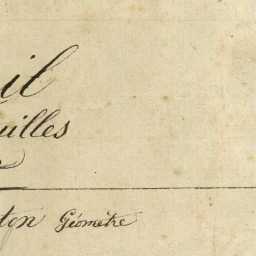 il
uilles
ton Géomètre